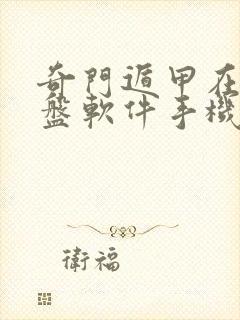 奇門遁甲在
盤軟件手機
衛福